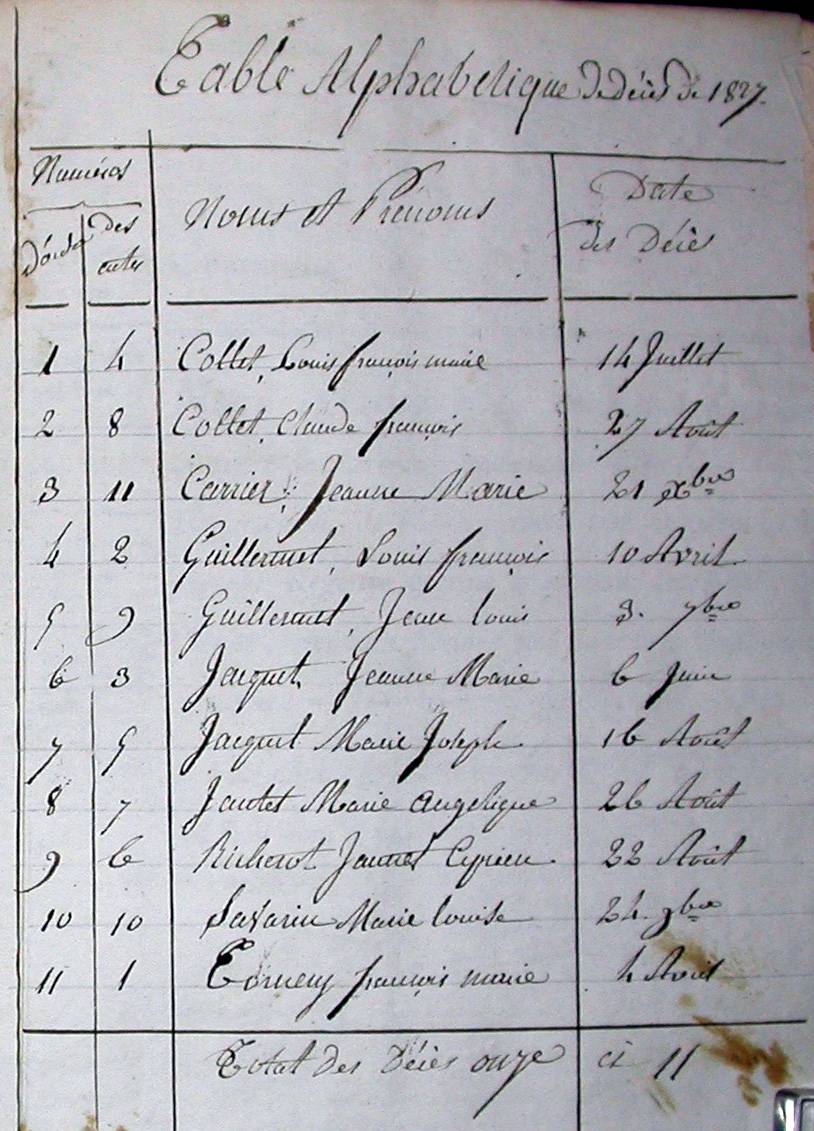 Table Alphabetique de décès de 1827.
Numéros
Noms et Prénoms
Date
des Décès
d'ordre
des
actes
1 4 Collet, Louis françois marie 14 Juillet
2 8 Collet, Claude françois 27 Août
3 11 Carrier, Jeanne Marie 21 Xbre
4 2 Guillermet, Louis françois 10 Avril
5 9 Guillermet, Jean louis 3. 7bre
6 3 Jacquet, Jeanne Marie 6 Juin
7 5 Jacquet Marie Joseph 16 Août
8 7 Jantet Marie Angelique 26 Août
9 6 Richerot Jannet Cyprien 22 Août
10 10 Savarin Marie louise 24. 9bre
11 1 françois marie 4 Avril
Total des Décès onze ci 11